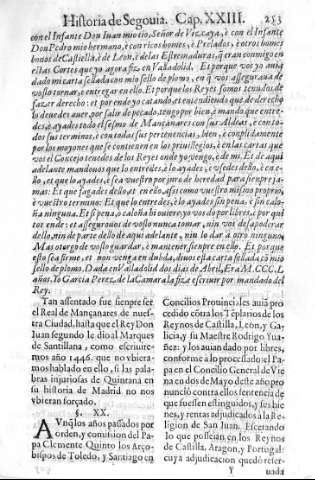 Historia de Segouia. Cap. XXIII. 253
con el Infante Don Iuan mio tio, Señor de Vizcaya, è con el Infante
Don Pedro mio hermano, è con ricos homes, è Prelados, è otros homes
bonos de Castiella, è de León, è de las Estremaduras, q̃ eran conmigo en
estas Cortes que yo agora fiz en Valladolid. Et porque vos yo mãde
dado mi carta sellada con mio sello de plomo, en q̃ vos asseguraua de
voslo tornar, è entregar en ello. Et porque los Reyes somos tenudos de
fazer derecho: et por ende yo catando, et entendiendo que de derecho
lo deuedes auer, por salir de pecado, tengo por bien, è mando que entre-
des, è ayades todo el sesmo de Mançanares con sus Aldeas, è con to-
dos sus terminos, è con todas sus pertenencias, bien, è conplidamente
por los moyones que se contienen en los priuillegios, è en las cartas que
vos el Concejo tenedes de los Reyes onde yo vengo, è de mi. Et de aqui
adelante mandouos que lo entredes, è lo ayades, è vsedes dello, è en e-
llo, et que lo ayades, è sea vuestro por juro de heredad para sienpre ja-
mas: Et que fagades dello, et en ello, assi como vuestro mismo proprio,
è vuestro termino: Et que lo entredes, è lo ayades sin pena, è sin calo-
ña ninguna. Et si pena, o caloña hi ouiere, yo vos do por libres, è por quitos
por ende: et asseguro uos de voslo nunca tomar, nin vos desapoderar
dello, nin de parte dello de aqui adelante, nin lo dar à otro ninguno,
Mas otorgo de voslo guardar, è mantener sienpre en ello. Et porque
esto sea firme, et non venga en dubda, diuos esta carta sellada cõ mio
sello de plomo. Dada en Valladolid dos dias de Abril, Era M.CCC.L
años. Yo Garcia Perez, de la Camara la fize escriuir por mandado del
Rey.
Tan asentado fue sienpre ser
el Real de Mançanares de nues-
tra Ciudad, hasta que el Rey Don
Iuan segundo le diò al Marques
de Santillana, como escriuire-
mos año 1446. que no vbiera-
mos hablado en ello, si las pala-
bras injuriosas de Quintana en
su historia de Madrid no nos
vbieran forçado.
§. XX.
AVnq̃ los años passados por
orden, y comision del Pa-
pa Clemente Quinto los Arço-
bispos de Toledo, y Santiago en
Concilios Prouinciales auiã pro-
cedido cõtra los Tẽplarios de los
Reynos de Castilla, Leon, y Ga-
licia, y su Maestre Rodrigo Yua-
ñez: y los auian dado por libres,
conforme a lo processado el Pa
pa en el Concilio General de Vie
na en dos de Mayo deste año pro
nunció contra ellos sentencia de
que fuessen estinguidos, y ses bie
nes, y rentas adjudicados a la Re-
ligion de San Iuan. Escetando
lo que posseian en los Reynos
de Castilla, Aragon, y Portugal:
cuya adjudicacion quedò reser-
Y uada